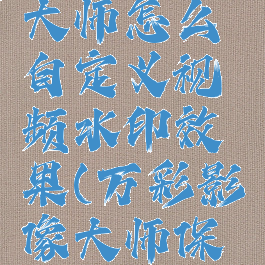 大师怎么
自定义视
频水印效
果(万彩影
像大师保